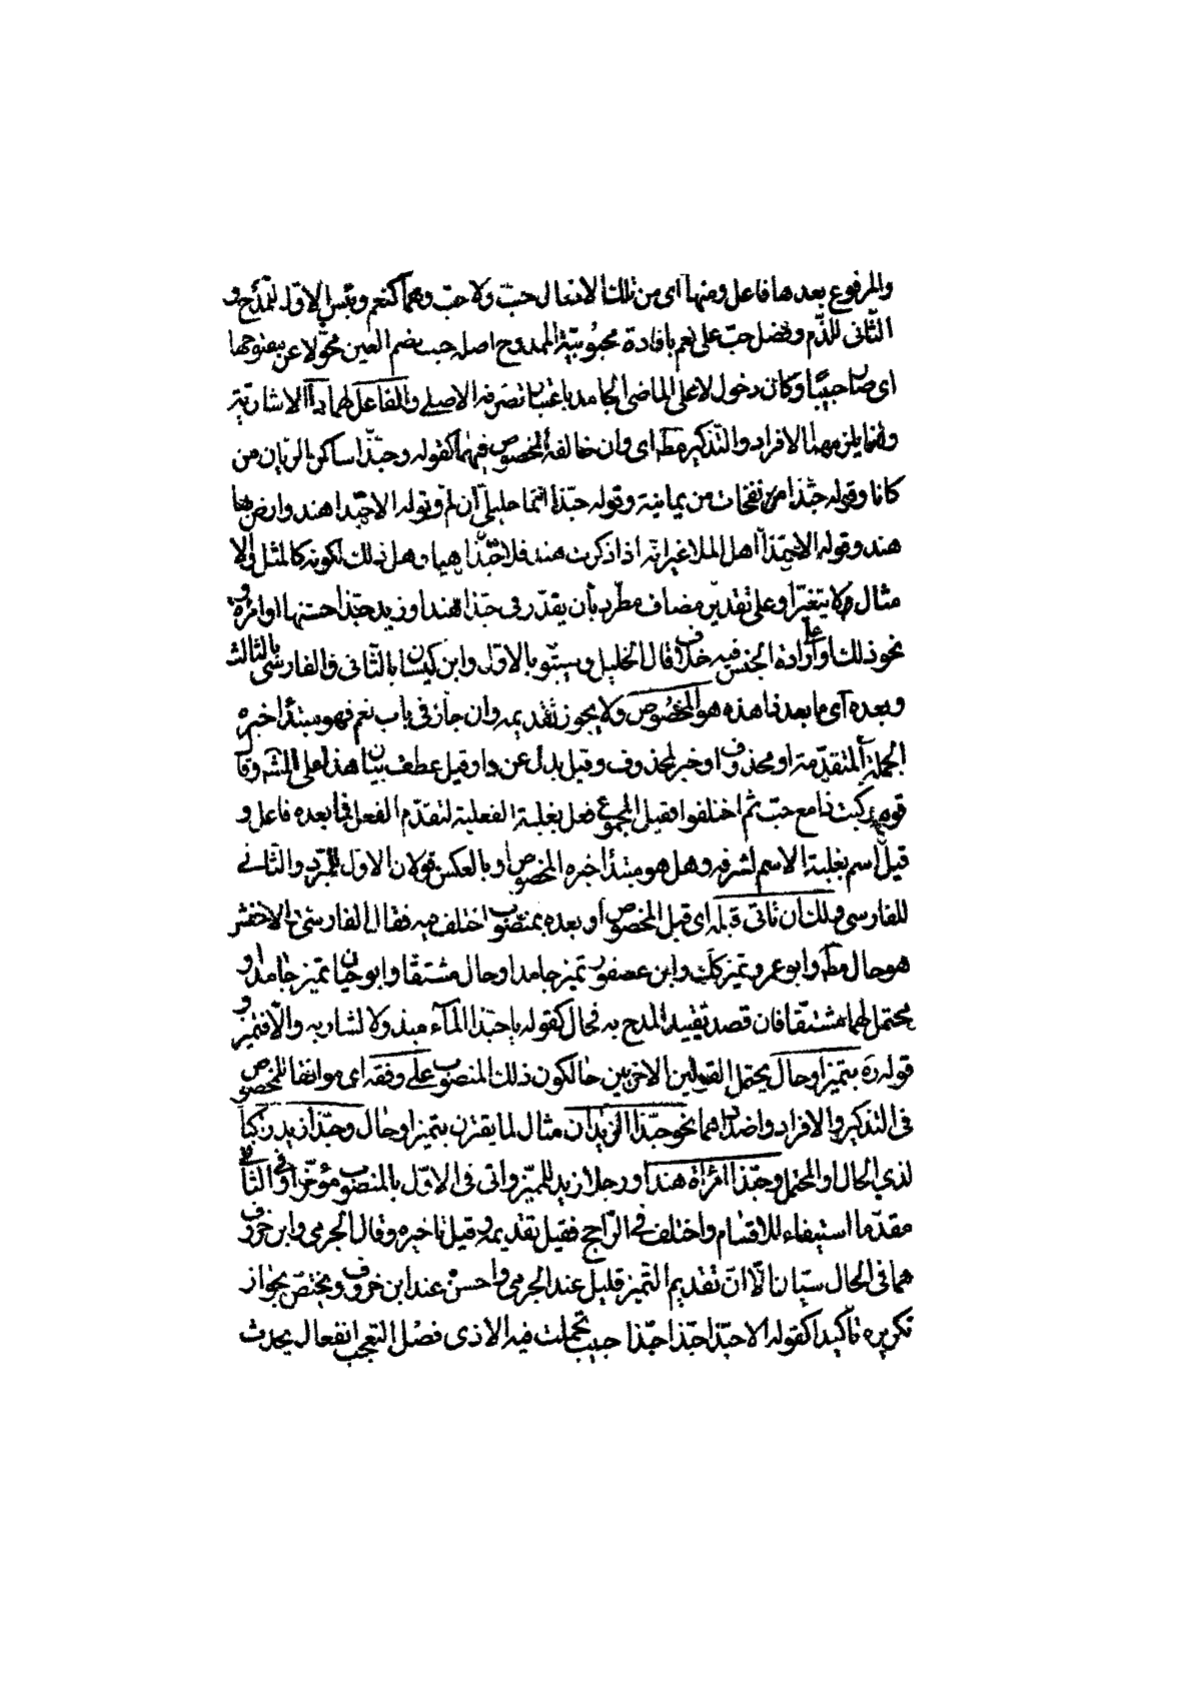 والمرفوع بعدها فاعل ومنها اى من تلك الافعال حبّ ولا حبّ وهما كنعم وبئس الاوّل للمدح و
الثّانى للذّم وفضل حبّ على نعم بافادة محبُوبيّة الممدوح اصله حبب بضم العين محوّلا عن مفتوحها
اى صار حبيبًا وكان دخول لا على الماضى الجامد باعتبار تصرفه الاصلى والفاعل لهما ذا الاشاريّة
وانما يلزمهما الافراد والتّذكير مطه اى وان خالفه المخصوص فيهما كقوله وحبّذا ساكن الريّان من
كانا وقوله حبّذا من نفحات من يمانية وقوله حبّذا انتما خليلىّ ان لم وقوله الا حبّذا هند وارض بها
هند وقوله الا حبّذا اهل الملا غير انّه اذا ذكرت هند فلا حبّذا هيا وهل ذلك لكونه كالمثل والا
مثال لا يتغيّر او على تقدير مضاف مطّرد بأن يقدّر فى حبّذا هند او زيد حبّذا حسنها او امره و
نحو ذلك او على ارادة الجنس فيه خلاف قال الخليل وسيبويه بالاوّل وابن كيسان بالثّانى والفارسى بالثالث
وبعده اى ما بعد ذا هذه هو المخصُوص ولا يجوز تقديمه وان جاز فى باب نعم فهو مبتدأ خبره
الجملة المتقدّمة او محذوف او خبر لمحذوف وقيل بدل عن ذا وقيل عطف بيان هذا على المشه وقا
قوم ركبت ذا مع حبّ ثم اختلفوا فقيل المجموع فعل بغلبة الفعلية لتقدّم الفعل فما بعده فاعل و
قيل اسم بغلبة الاسم لشرفه وهل هو مبتدأ خبره المخصوص او بالعكس قولان الاوّل للمبرّد والثّانى
للفارسى ولك ان تاتى قبله اى قبل المخصوص او بعده بمنصوب اختلف فيه فقال الفارسى والاخفش
هو حال مطه وابو عمرو تميز كك وابن عصفور تميز جامدا وحال مشتقّا وابو حيّان تميز جامدا و
محتمل لهما مشتقّا فان قصد تقييد المدح به فحال كقوله يا حبّذا المآء مبذولا لشاربه والّا فتميز و
قوله ره بتميز او حال يحتمل القولين الاخيرين حالكون ذلك المنصوب على وفقه اى موافقا للمخصوص
فى التذكير والافراد واضدادهما نحو حبّذا الزيدان مثال لما يقترن بتميز او حال وحبّذا زيد راكبا
لذى الحال او المحتمل وحبّذا امرأة هند او رجلا زيد للمميّز واتى فى الاوّل بالمنصوب مؤخّرا وفى الثانى
مقدّما استيفاء للاقسام واختلف فى الرّاجح فقيل تقديمه وقيل تاخيره وقال الجرمى وابن خروف
هما فى الحال سيّان الّا انّ تقديم التميز قليل عند الجرمى واحسن عند ابن خروف ويختصّ بجواز
تكريره تأكيدا كقوله الا حبّذا حبّذا حبّذا حبيب تحملت فيه الاذى فصْل التعجب انفعال يحدث